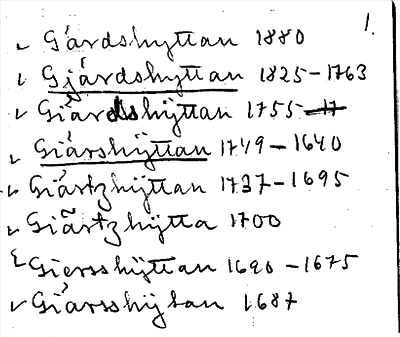 1.
Gårdshyttan 1880
Gjärdshyttan 1825-1763
Giärdshÿttan 1755-17
Giärshÿttan 1749-1640
Giärtzhÿttan 1737-1695
Giärtzhÿtta 1700
Giersshÿttan 1690-1675
Giärsshÿtan 1687